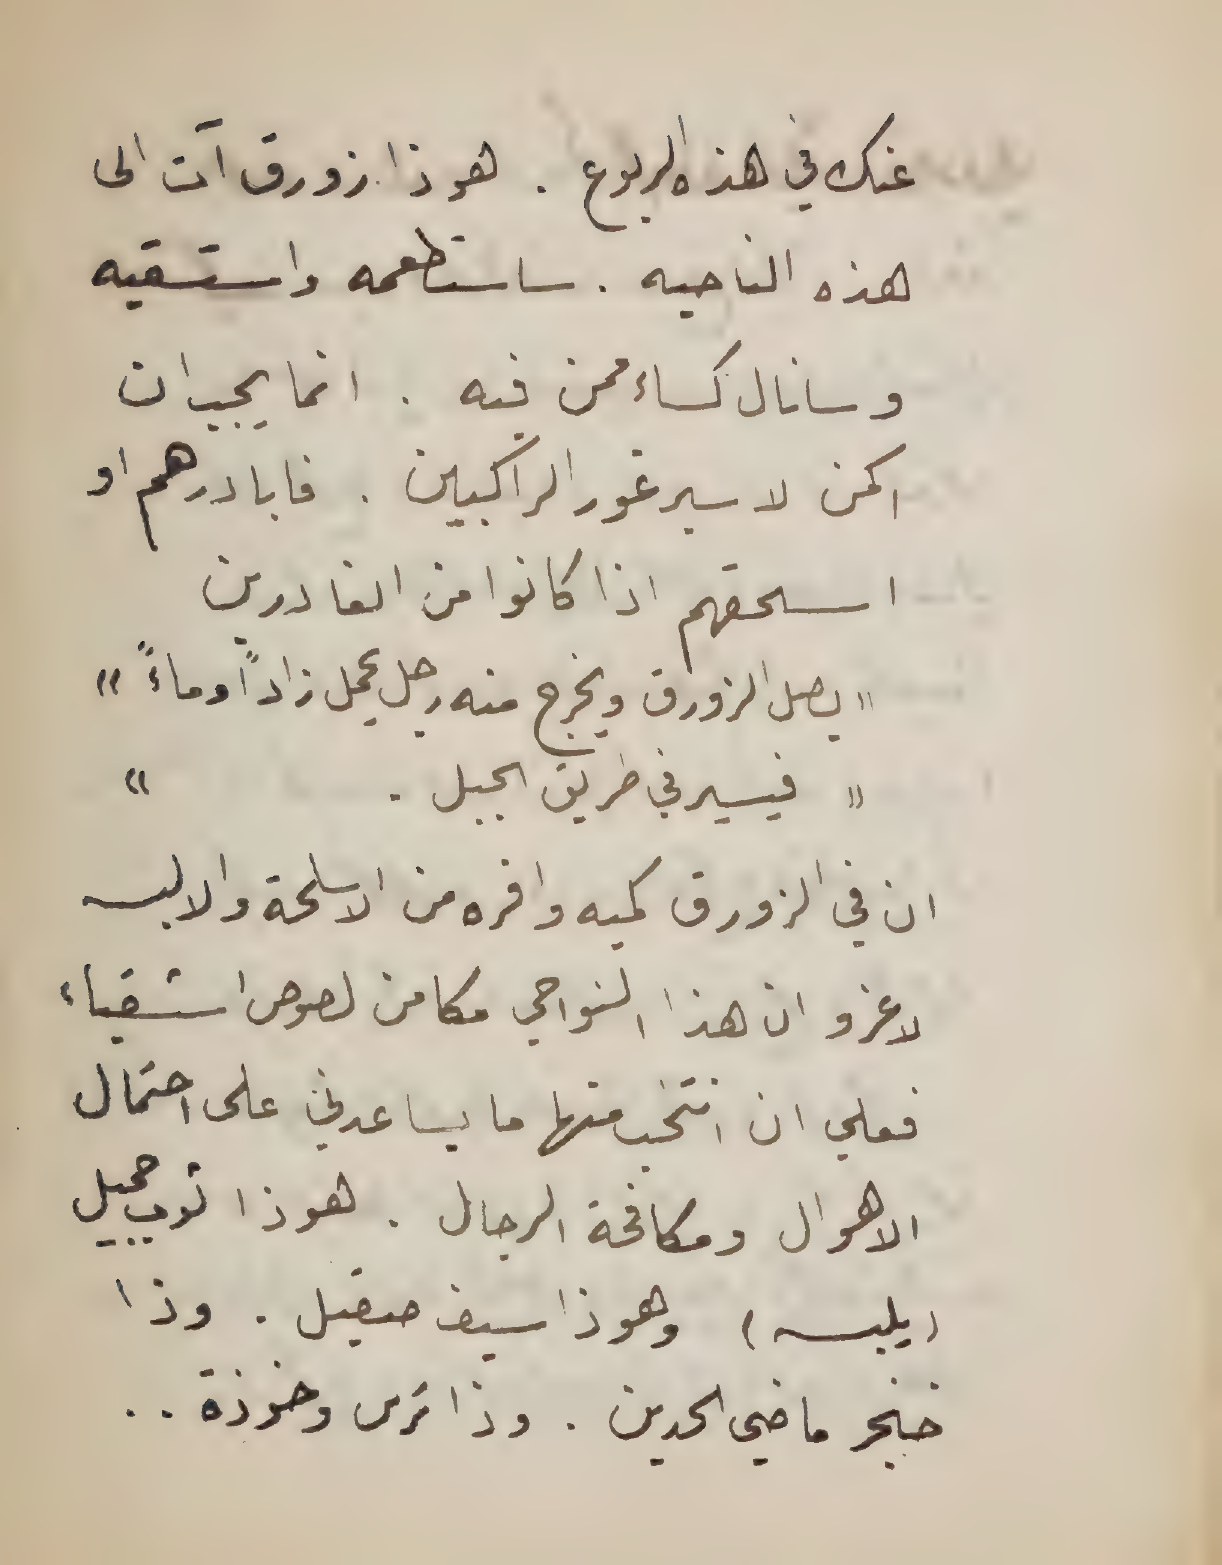 عنك في هذه الربوع . هوذا زورق آت الى
هذه الناحيه . ساستطعمه واستسقيه
وسانال كساء ممن فيه . انما يجب ان
اكمن لاسبر غور الراكبين . فابادرهم او
اسحقهم اذا كانوا من الغادرين
" يصل الزورق ويخرج منه رجل يحمل زاداً وماءً "
" فيسير في طريق الجبل . "
ان في الزورق كميه وافره من الاسلحة والالبسه
لاغرو ان هذا النواحي مكامن لصوص اشقياء
فعلي ان انتخب منها ما يساعدني على احتمال
الاهوال ومكافحة الرجال . هوذا ثوب جميل
(يلبسه) وهوذا سيف صقيل . وذا
خنجر ماضي الحدين . وذا ترس وخوذة . .